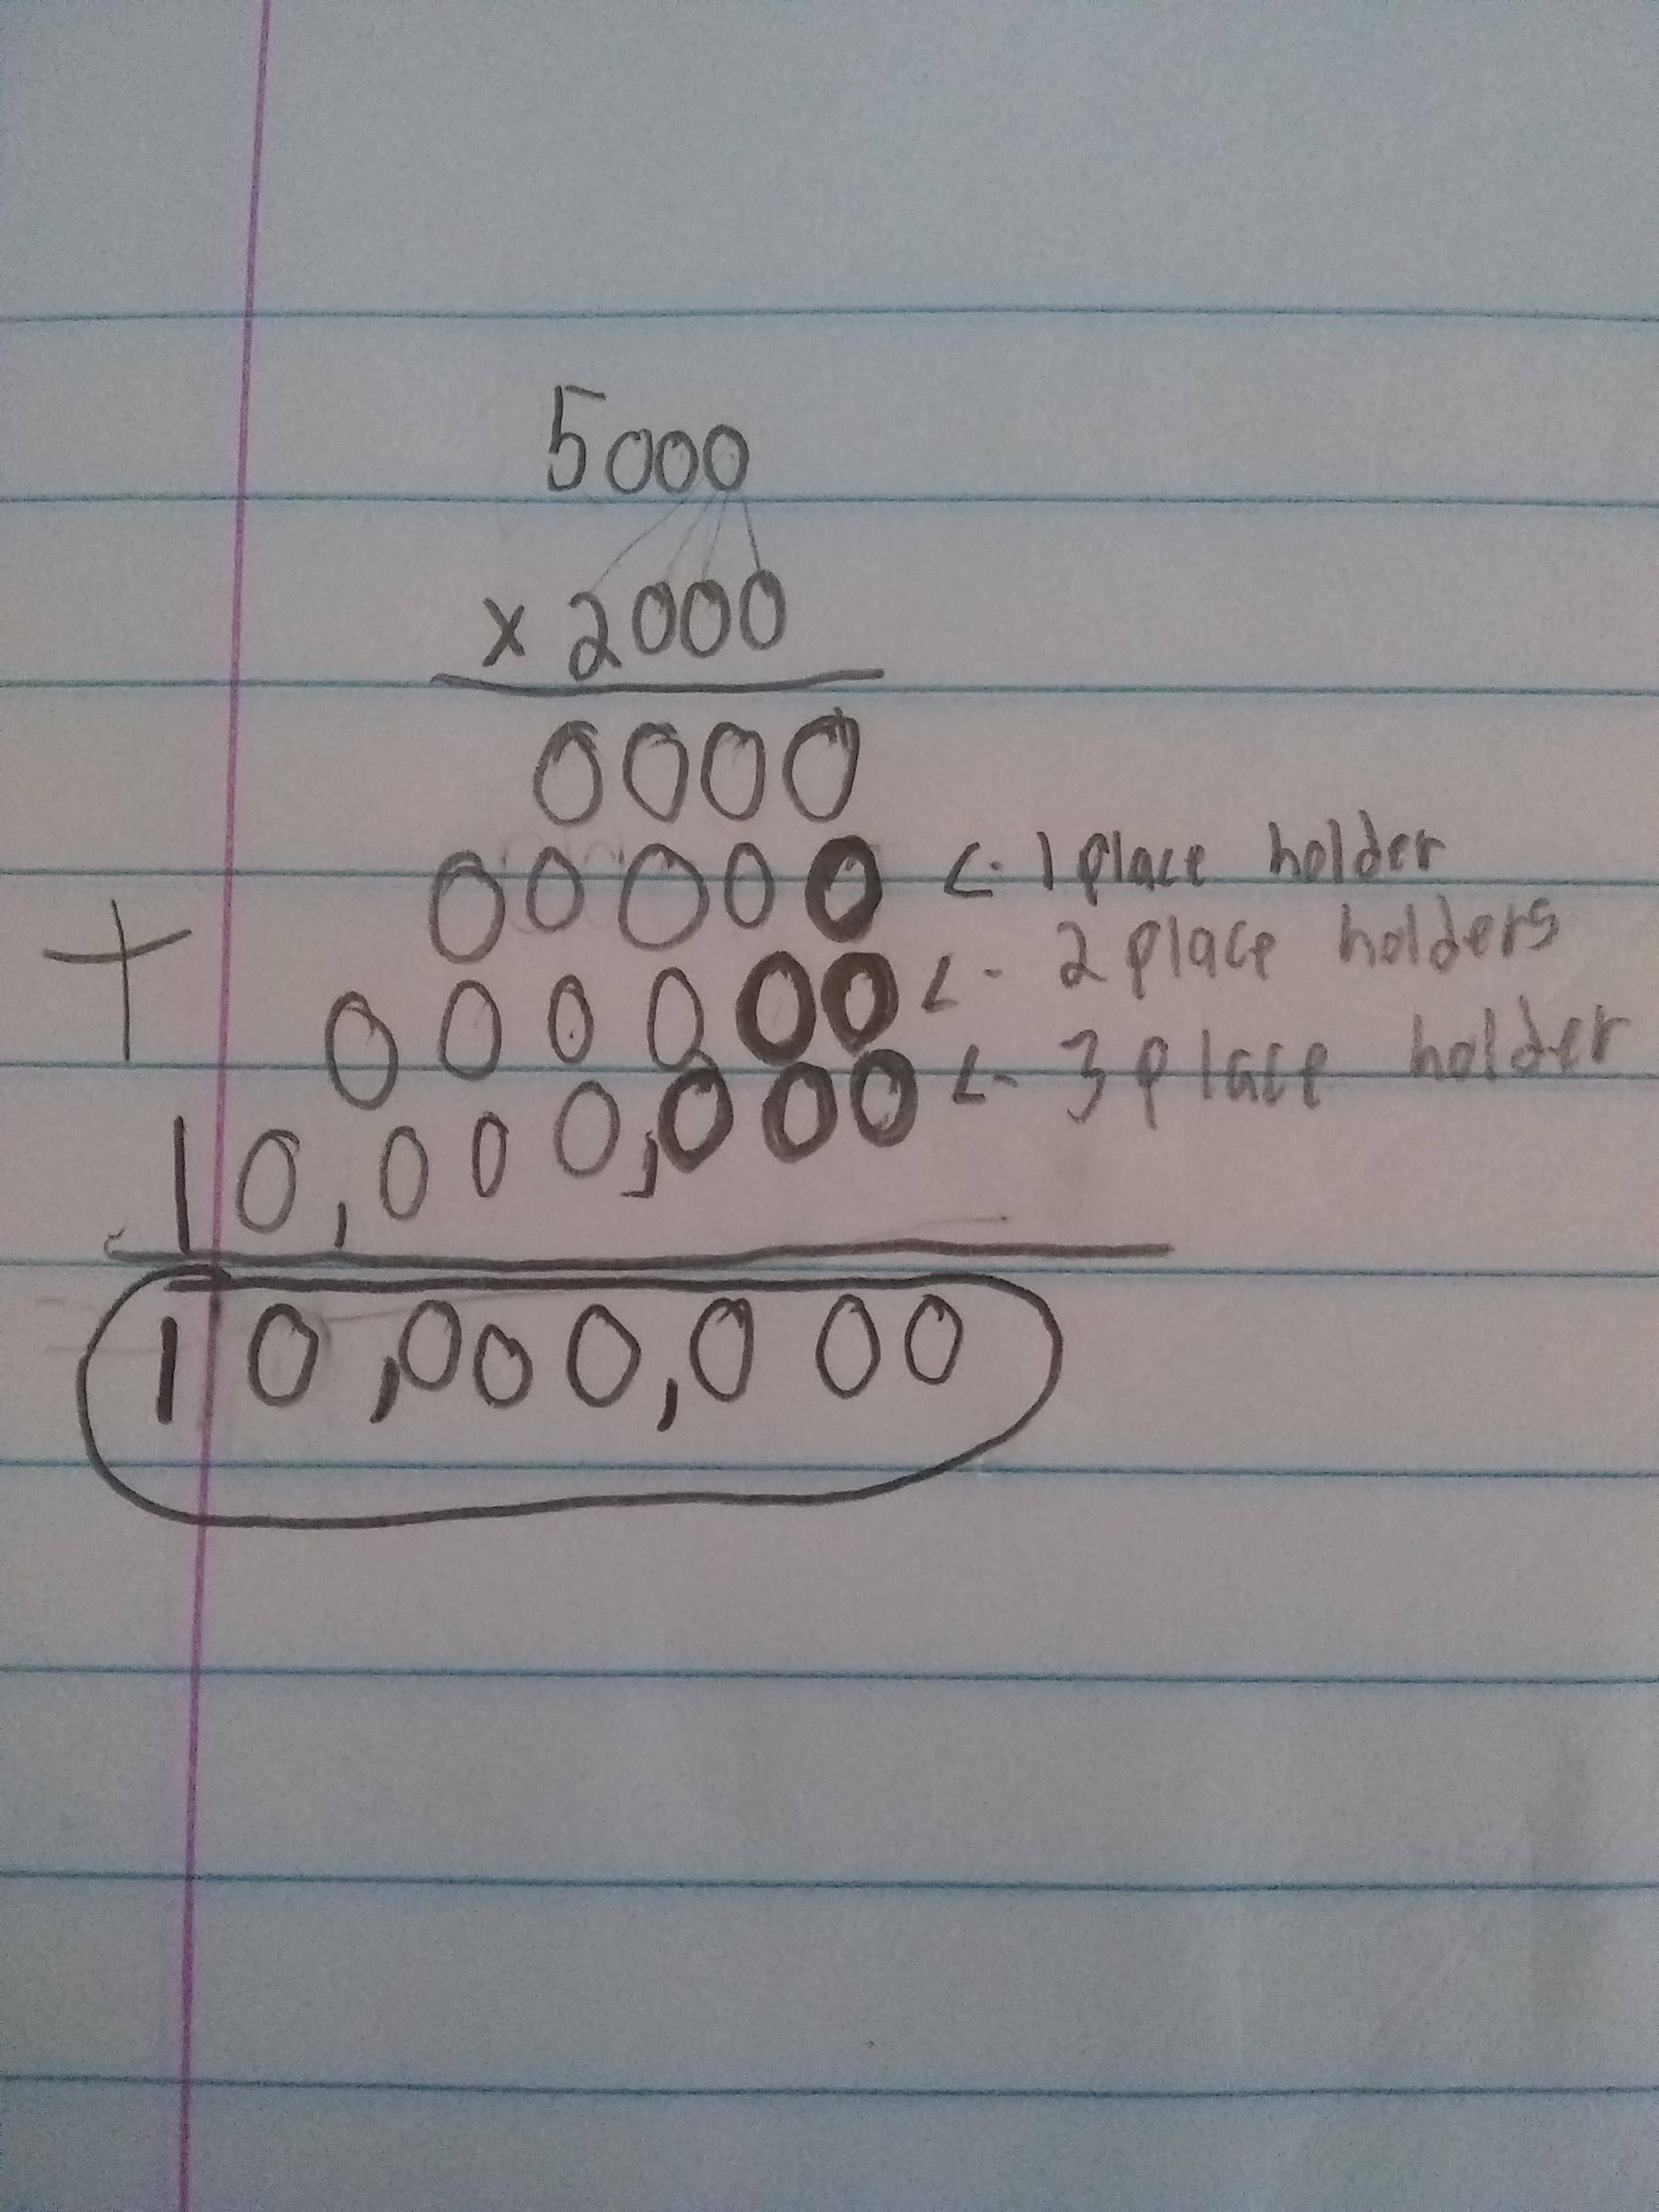 5000
x 2000
0000
00000 <- 1 place holder
+ 000000 <- 2 place holders
10,000,000 <- 3 place holder
10,000,000